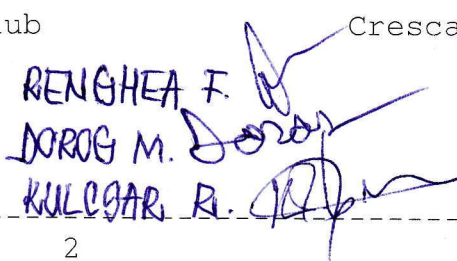 lub Cresca
RENGHEA F.
DOROG M. Dorog
KULCSAR R.
2